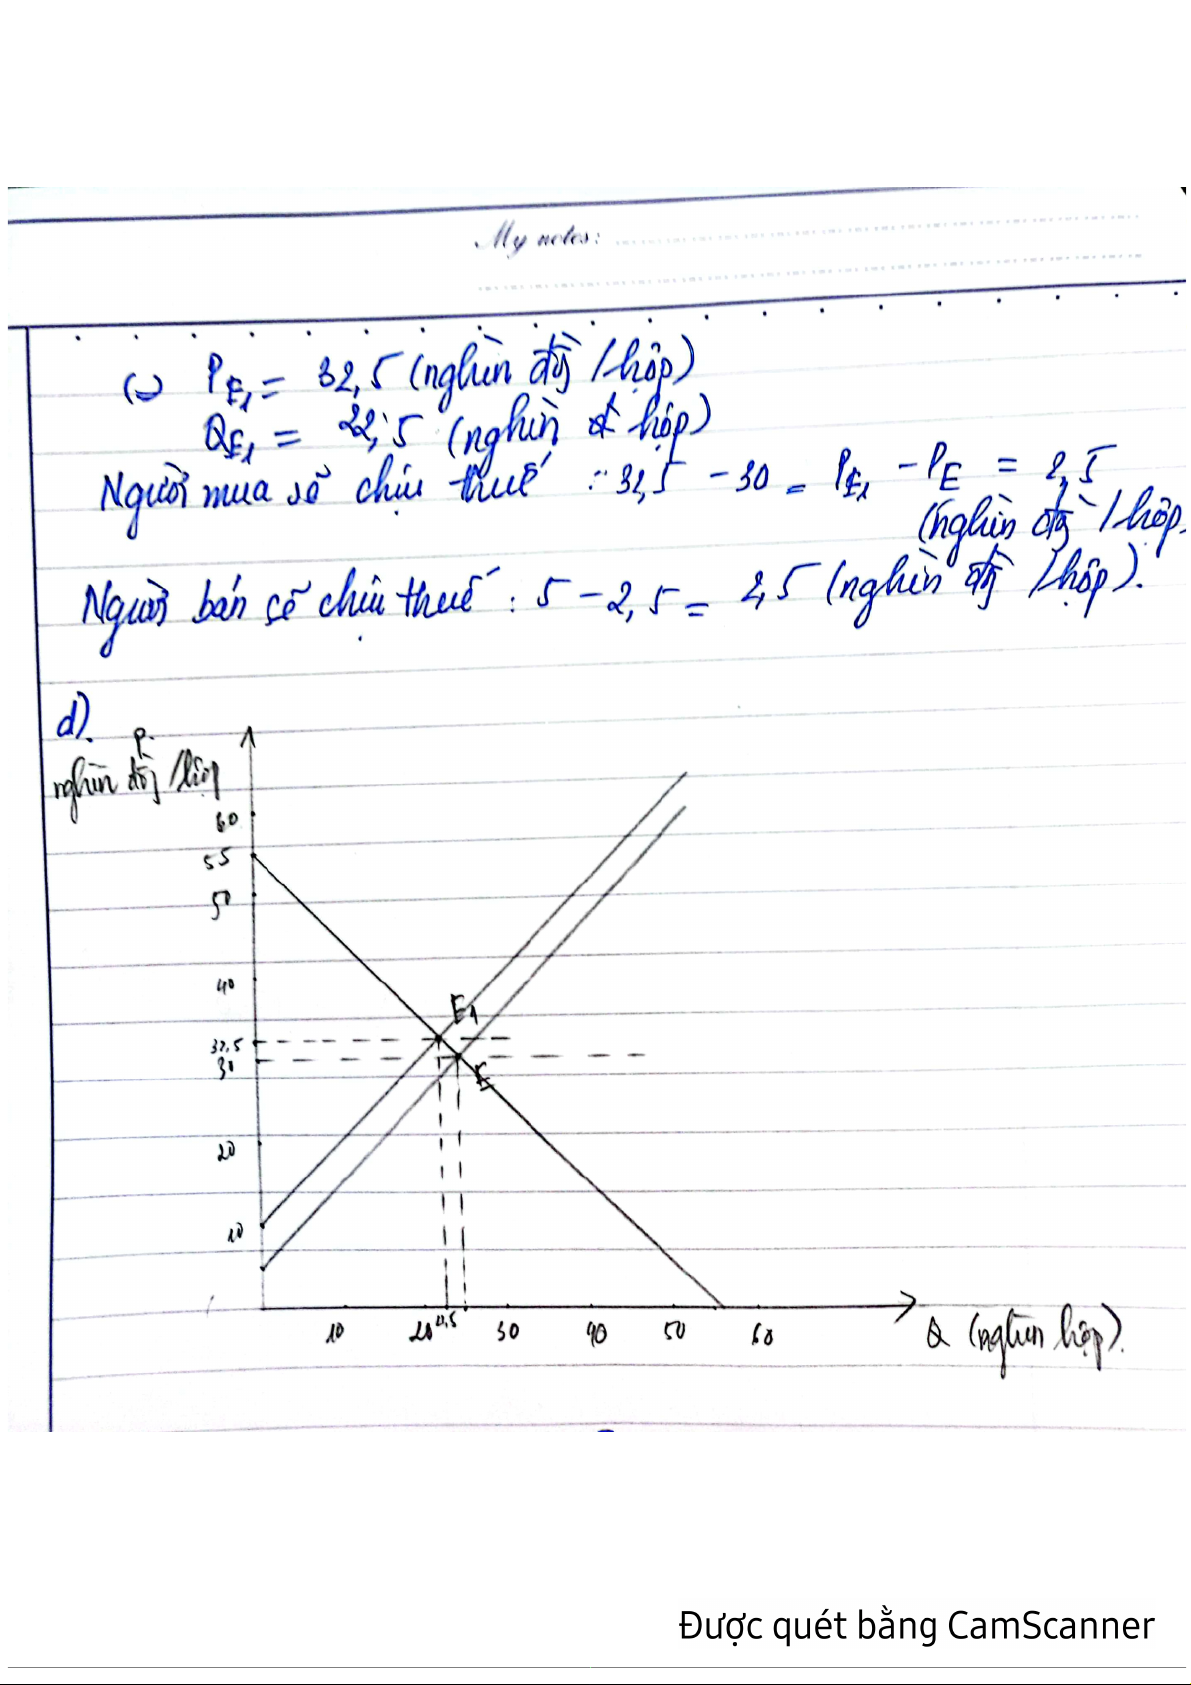 My notes:
(=) PE1 = 32,5 (nghìn đồng /hộp)
QE1 = 22,5 (nghìn hộp)
Người mua sẽ chịu thuế : 32,5 - 30 = PE1 - PE = 2,5
(nghìn đồng / hộp
Người bán sẽ chịu thuế : 5 - 2,5 = 2,5 (nghìn đồng /hộp).
d).
P
nghìn đồng /hộp
60
55
50
40
32,5
30
20
10
E1
E
10 20 22,5 30 40 50 60
Q (nghìn hộp).
Được quét bằng CamScanner